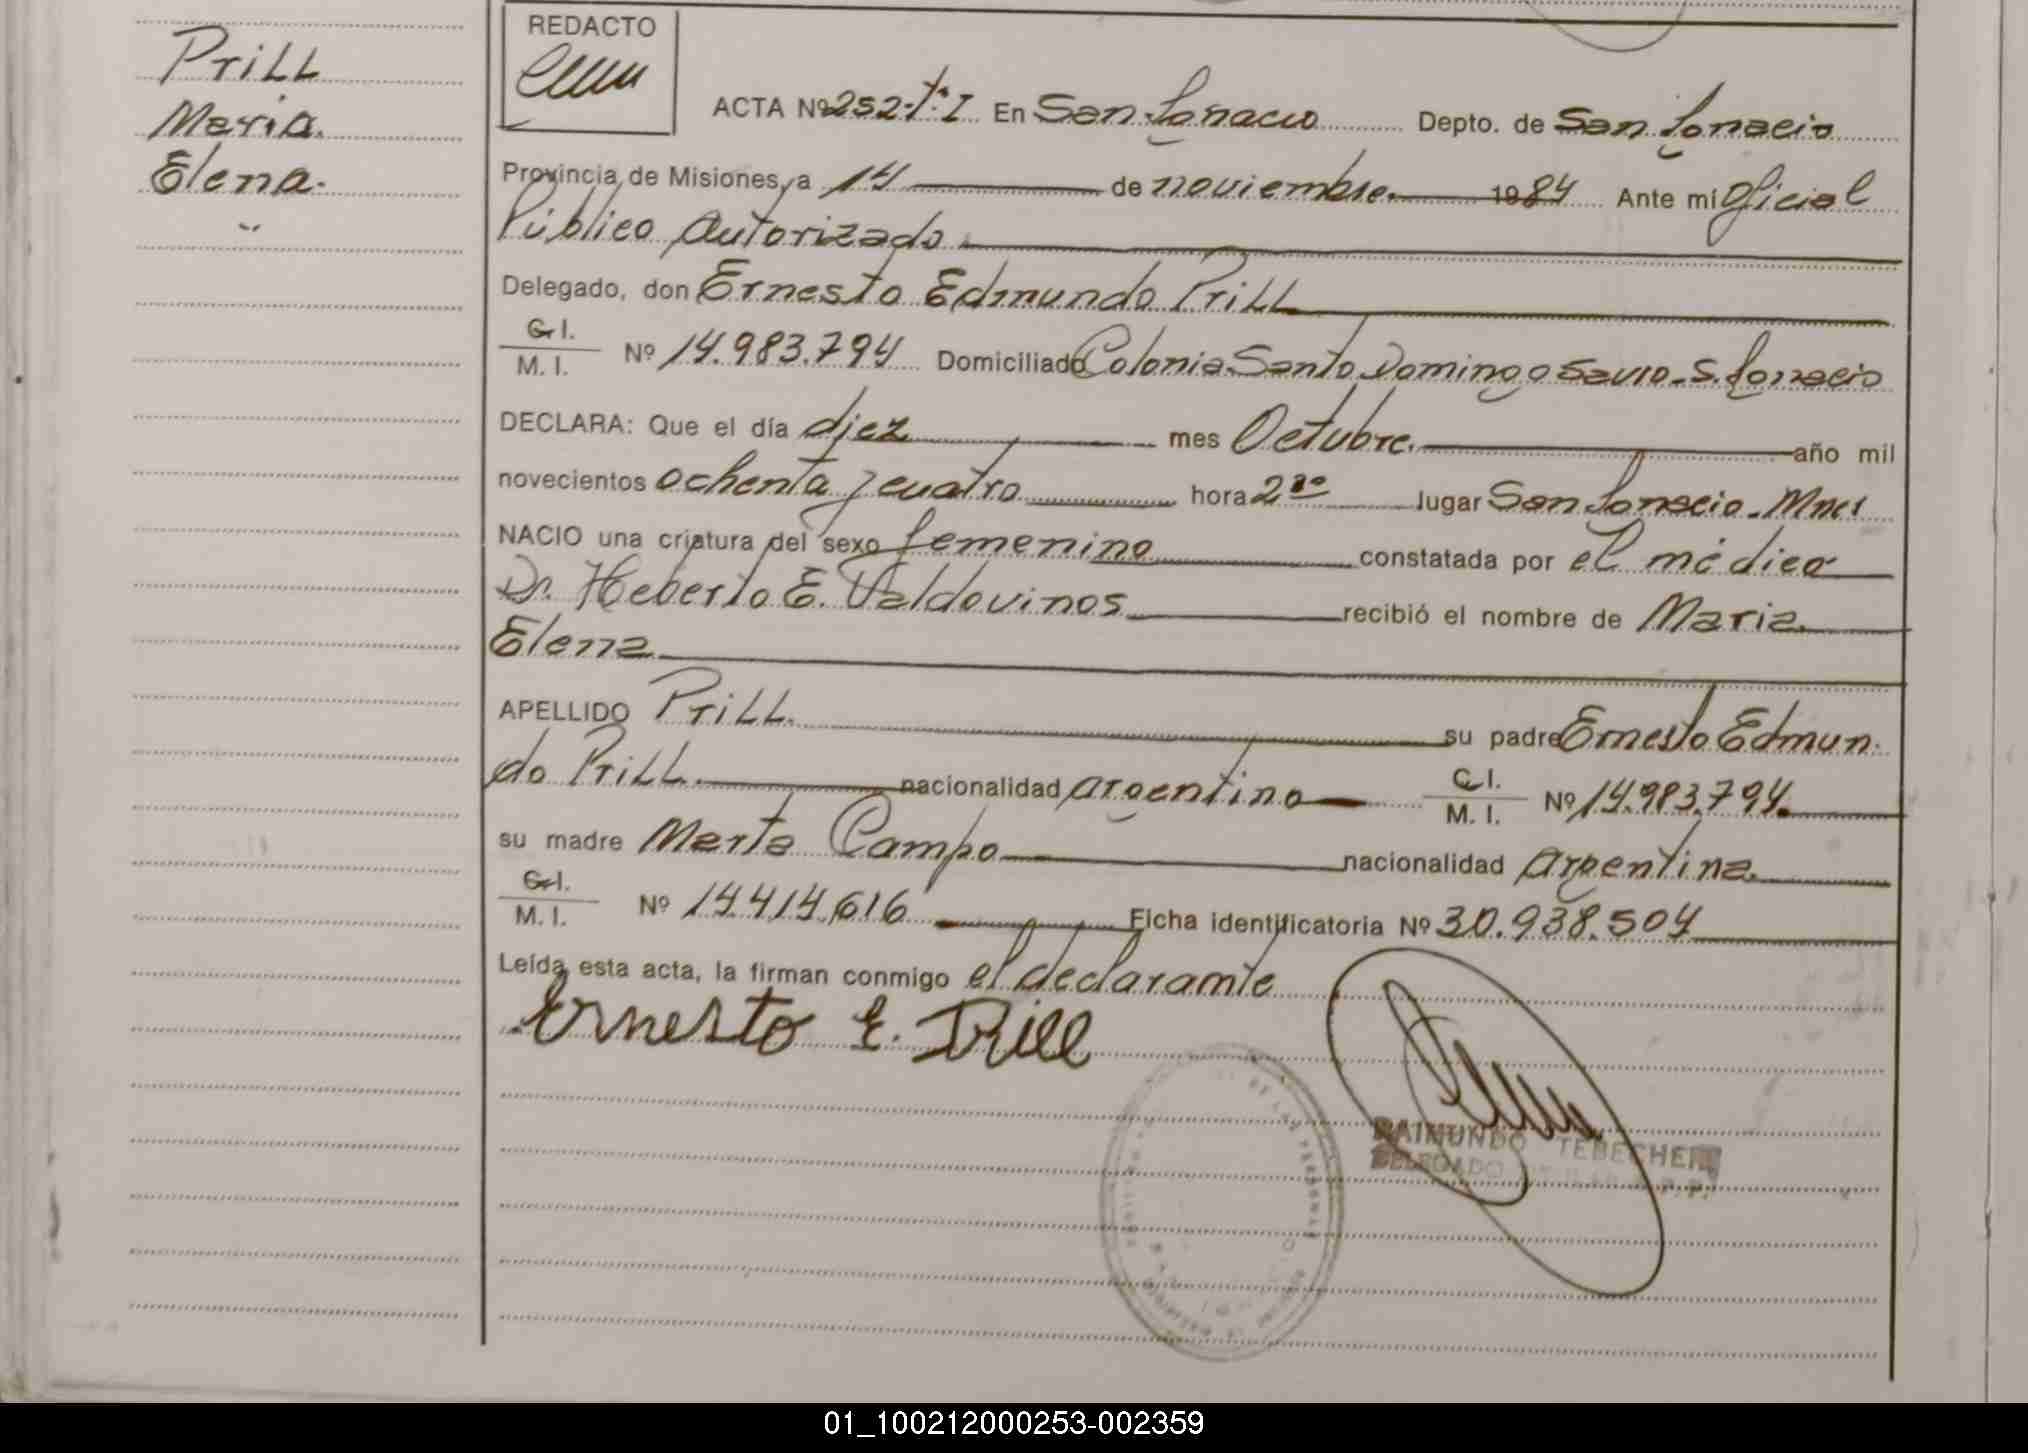 Prill
Maria
Elena.
REDACTO
ACTA Nº 252-Tº I En San Ignacio Depto. de San Ignacio
Provincia de Misiones, a 14 de noviembre 1984 Ante mi Oficial
Público Autorizado
Delegado, don Ernesto Edmundo Prill
C.I.
M. I. Nº 14.983.794 Domiciliado Colonia Santo Domingo Savio - S. Ignacio
DECLARA: Que el día diez mes Octubre. año mil
novecientos ochenta y cuatro hora 2 lugar San Ignacio - Mnes
NACIO una criatura del sexo femenino constatada por el médico
Dr. Heberto E. Valdovinos recibió el nombre de Maria
Elena
APELLIDO Prill su padre Ernesto Edmun-
do Prill nacionalidad argentino C.I.
M. I. Nº 14.983.794.
su madre Marta Campo nacionalidad argentina
C.I.
M. I. Nº 14.414.616 Ficha identificatoria Nº 30.938.504
Leída esta acta, la firman conmigo el declarante
Ernesto E. Prill
RAIMUNDO TEBECHERI
DELEGADO R.P.P.
DE LAS PERSONAS
01_100212000253-002359